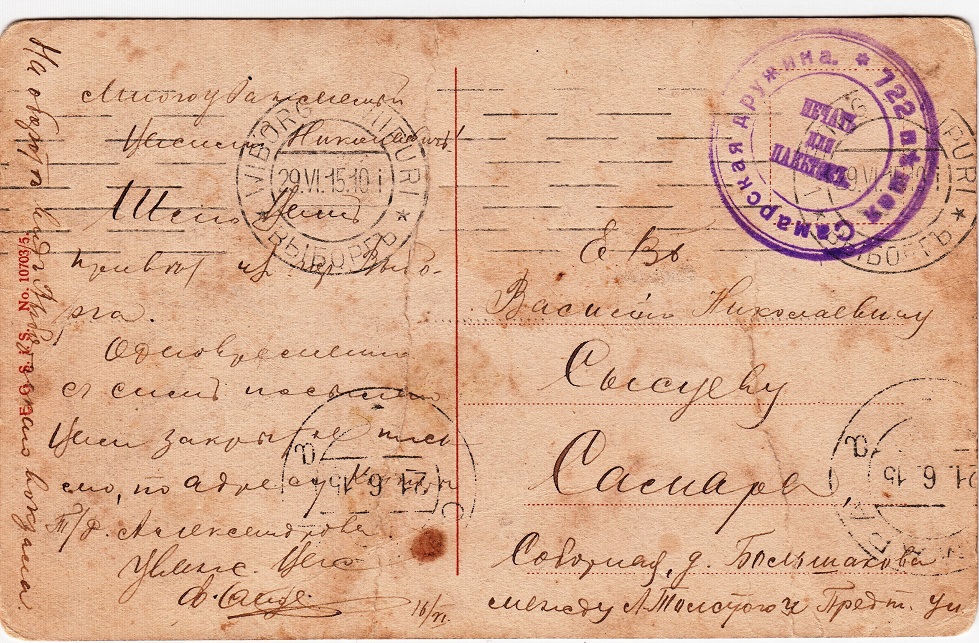 Многоуважаемый
Николаевич
Шлю Вам
привет из гор. Выбо-
рга.
Одновременно
с сим посылаю
Вам закрытое пись-
мо, по адресу
Т/Д. Александрова.
16/VI.
На обороте вид Выборгского вокзала.
E. G. S. i. S. No. 10703/5
WIBORG VIIPURI
29.VI.15.10 i
ВЫБОРГЪ
722 пѣшая Самарская дружина.
ПЕЧАТЬ
ДЛЯ
ПАКЕТОВЪ
PURI
29.VI.15.10 i
ВЫБОРГЪ
Е Въ
Василію Николаевичу
Сысуеву
Самара
Соборная, д. Большакова
между Л. Толстого и Предт. ул
21 6 15
21 6 15